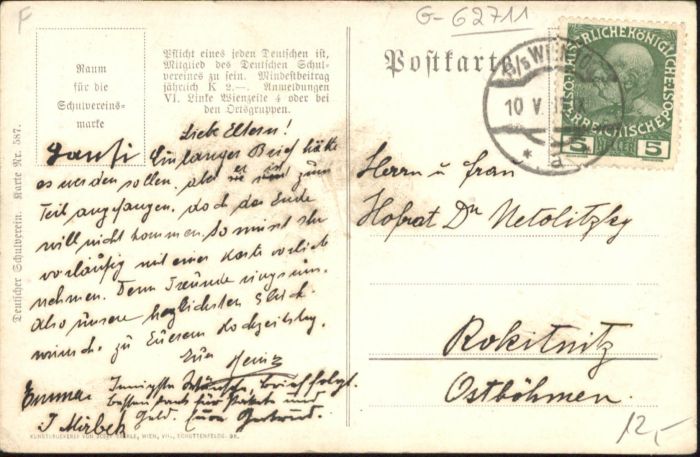 F
G-62711
Raum
für die
Schulvereins-
marke
Pflicht eines jeden Deutschen ist,
Mitglied des Deutschen Schul-
vereines zu sein. Mindestbeitrag
jährlich K 2.—. Anmeldungen
VI. Linke Wienzeile 4 oder bei
den Ortsgruppen.
Postkarte
WIEN
10 V
5 5
Deutscher Schulverein. Karte Nr. 587.
Liebe Eltern!
Ein langer Brief hätte
es werden sollen, aber er ist zum
Teil angefangen, doch das Ende
will nicht kommen. So müsst Ihr
vorläufig mit einer Karte vorlieb
nehmen. Denn Freunde ringsum.
Also unsere herzlichsten Glück-
wünsche zu Euerem Hochzeitstag.
Euer Heinz
Innigste Wünsche, Brief folgt.
Besten Dank für Pakete und
Geld. Eure Gertrud.
Emma
J Mirbek
Herrn u frau
Hofrat Dr Netolitzky
Rokitnitz
Ostböhmen.
12,-
KUNSTDRUCKEREI VON JOSEF EBERLE, WIEN, VII., SCHOTTENFELDG. 38.